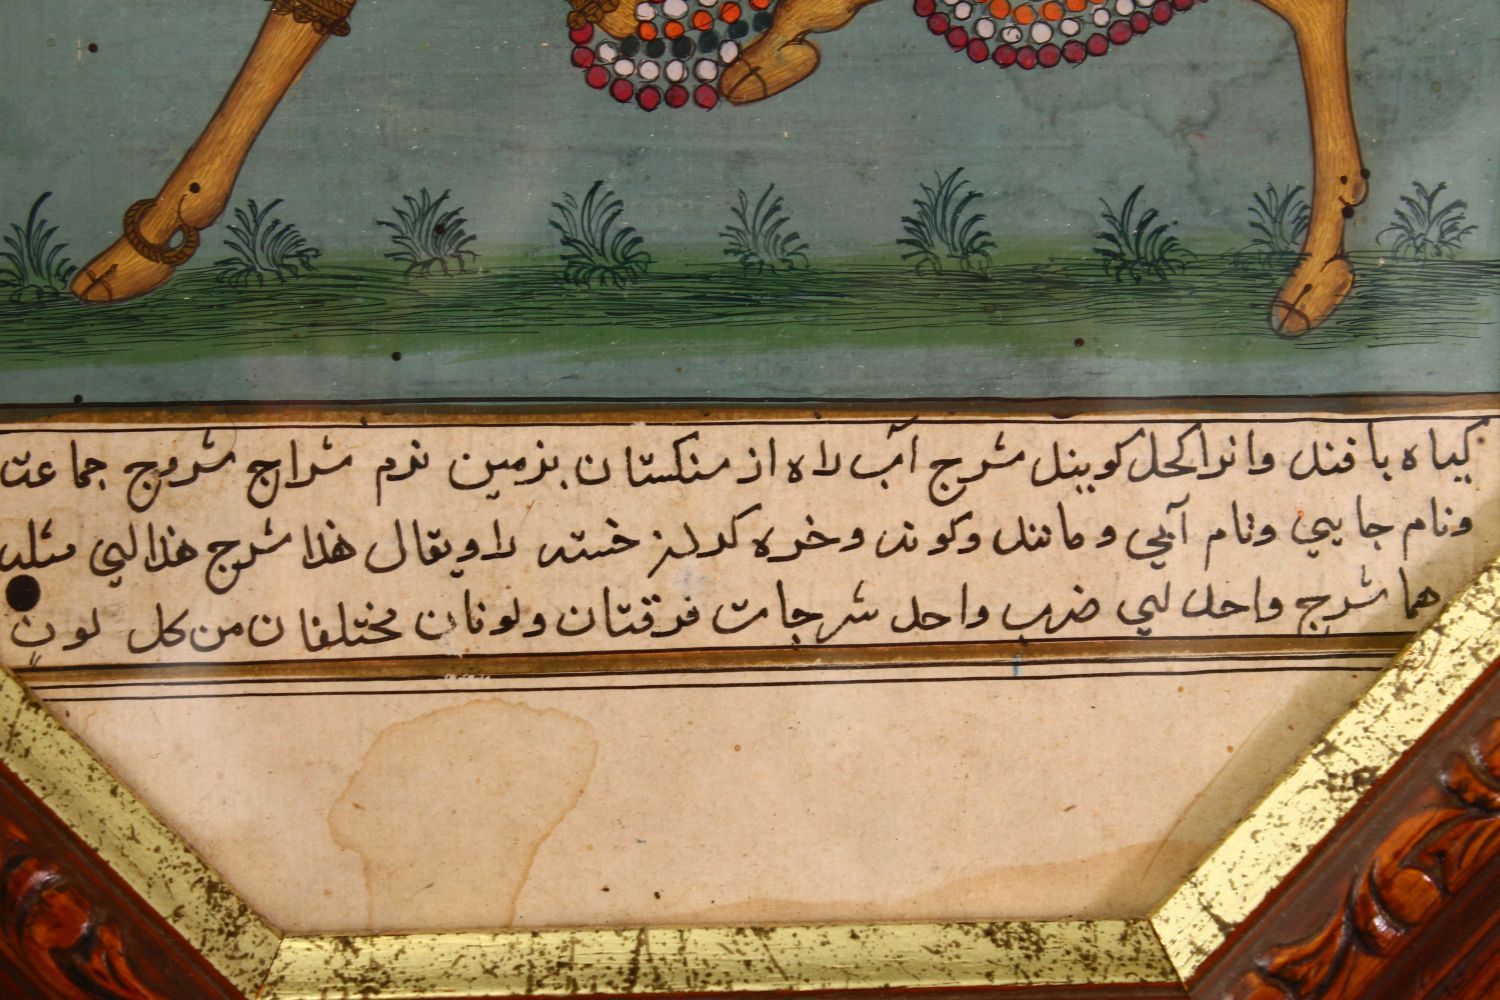 گیاه بافند وانرا کحل کویند شرج آب راه از سنکستان بزمین نرم شراج شروج جماعت
ونام جایی ونام آبی و مانند وکوند و خره کدلز خسته را ویقال هذا شرج هذا لی مثله
هما شرج واحد لی ضرب واحد شرجات فرقتان ولونان مختلفان من کل لون